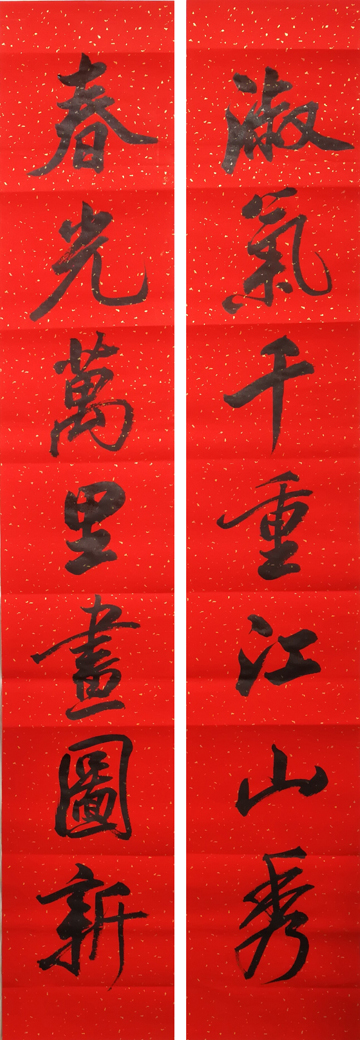 淑氣千重江山秀
春光萬里畫圖新